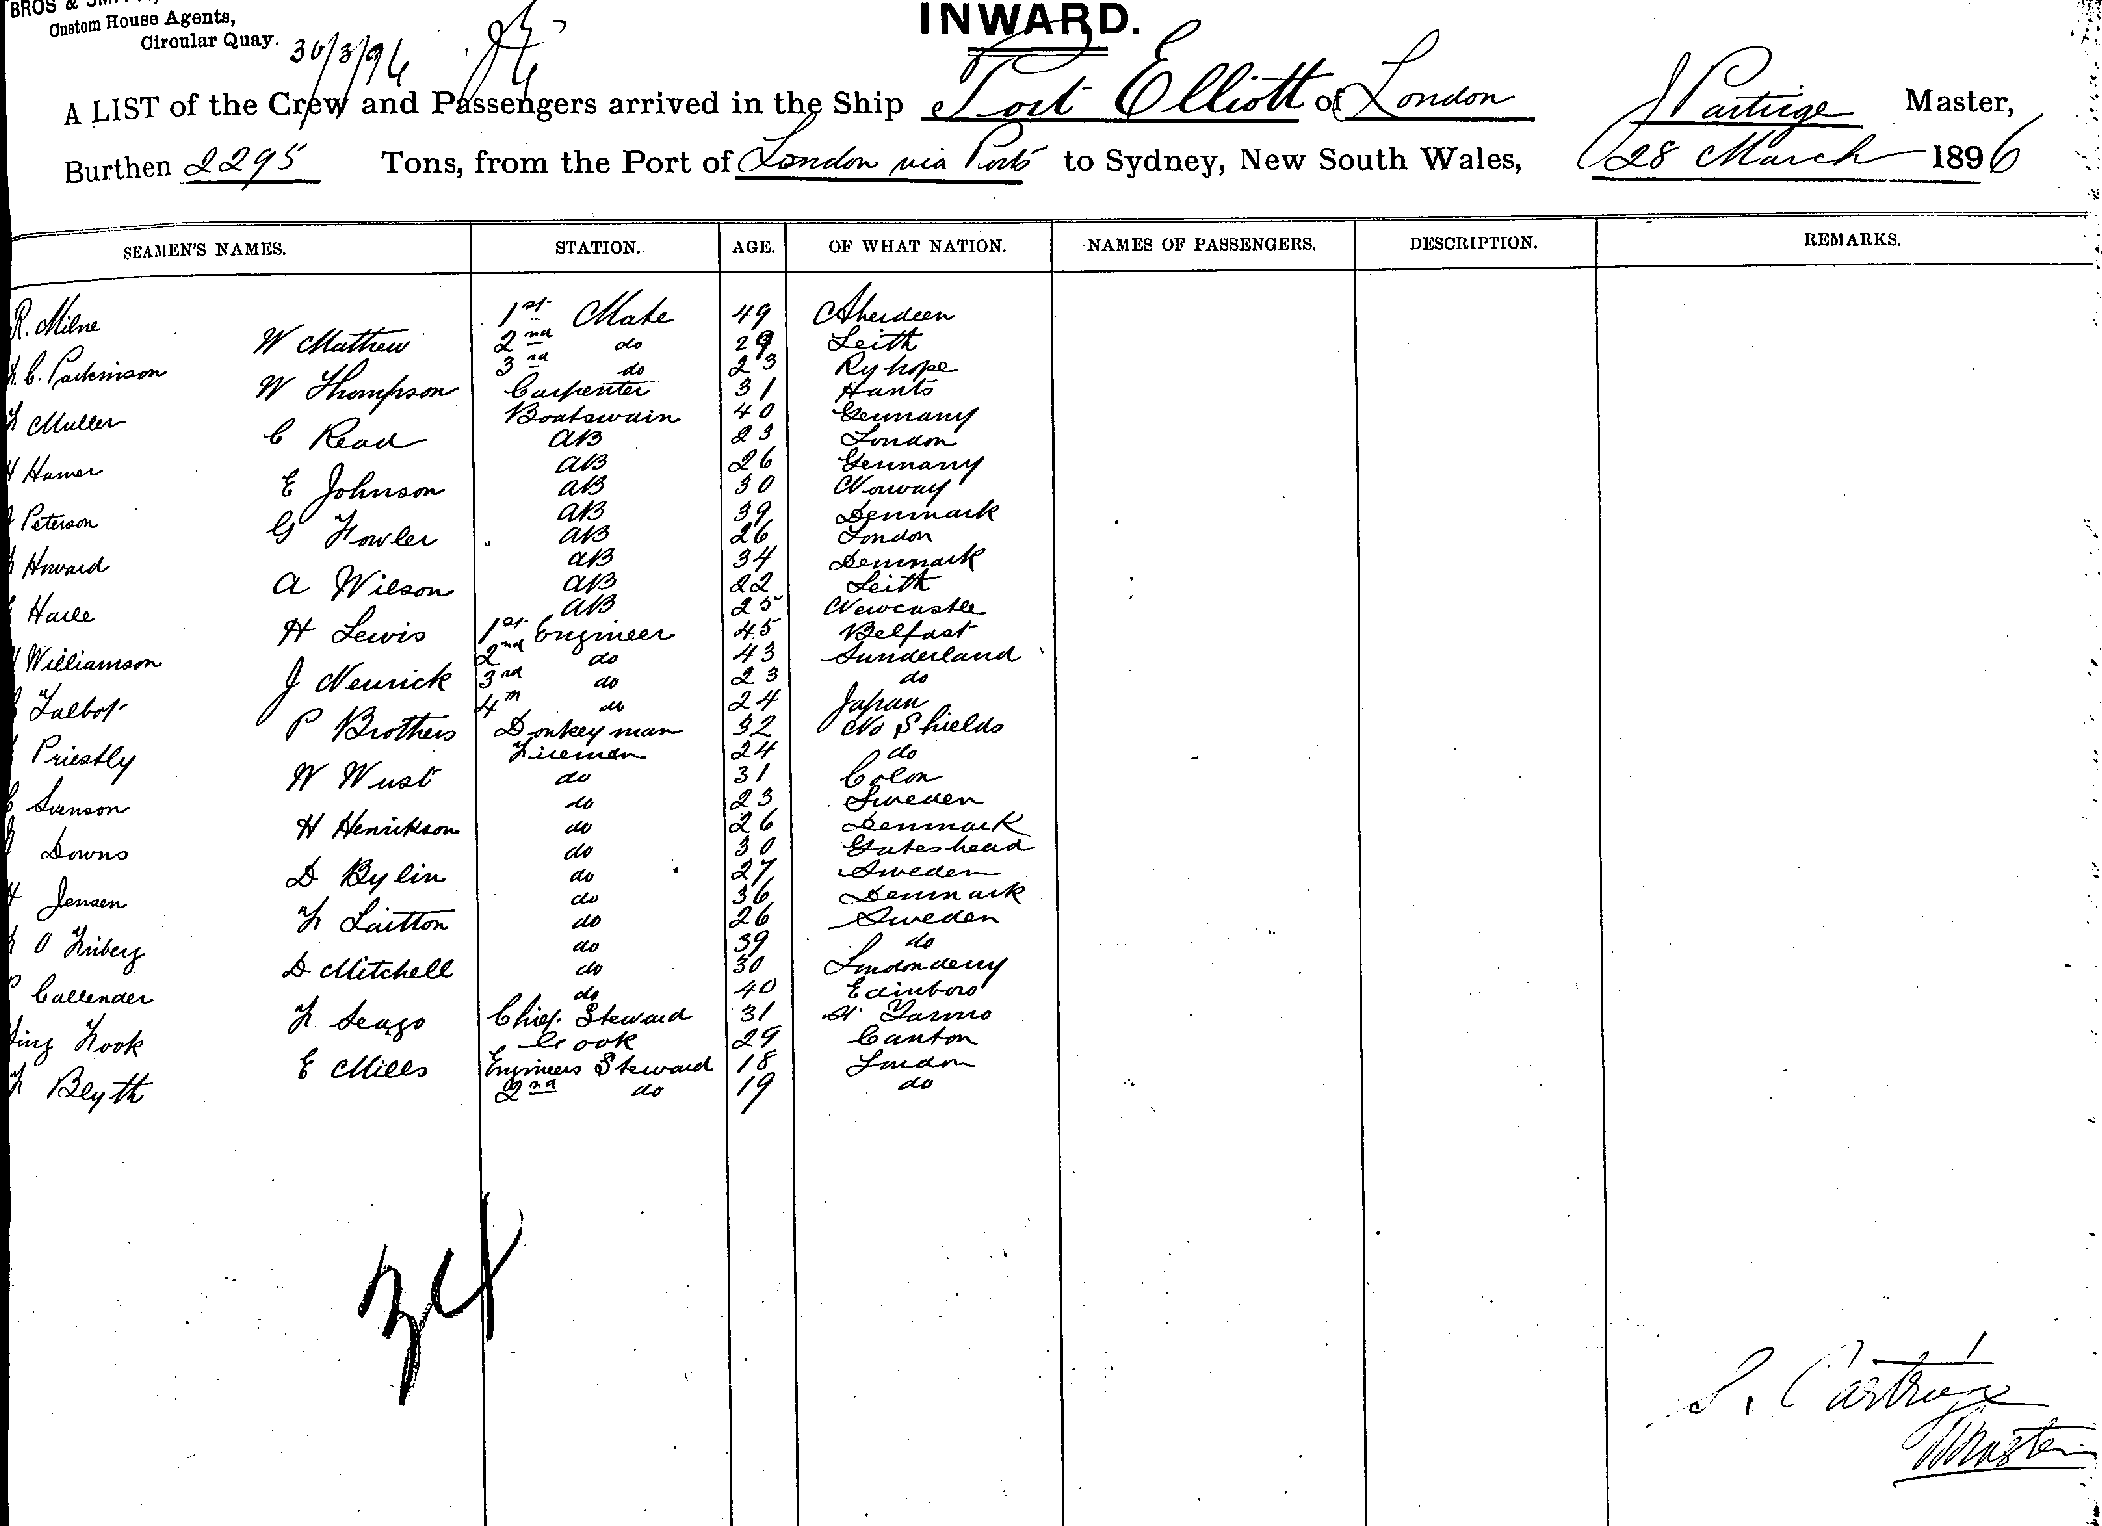 BROS &
Custom House Agents,
Circular Quay. 30/3/96
INWARD.
A LIST of the Crew and Passengers arrived in the Ship Port Elliott of London J Partrige Master,
Burthen 2295 Tons, from the Port of London via Ports to Sydney, New South Wales, 28 March 1896
SEAMEN'S NAMES. STATION. AGE. OF WHAT NATION. NAMES OF PASSENGERS. DESCRIPTION. REMARKS.
R. Milne 1st Mate 49 Aberdeen
W Mathew 2nd do 29 Leith
C. Parkinson 3rd do 23 Ryhope
W Thompson Carpenter 31 Hants
Muller Boatswain 40 Germany
C Read AB 23 London
Hamer AB 26 Germany
E Johnson AB 30 Norway
Peterson AB 39 Denmark
G Fowler AB 26 London
Howard AB 34 Denmark
A Wilson AB 22 Leith
Haile AB 25 Newcastle
H Lewis 1st Engineer 45 Belfast
Williamson 2nd do 43 Sunderland
J Neurick 3rd do 23 do
Talbot 4th do 24 Japan
P Brothers Donkeyman 32 No Shields
Priestly Fireman 24 do
W Wust do 31 Colon
Svenson do 23 Sweden
H Henrikson do 26 Denmark
Downs do 30 Gateshead
D Bylin do 27 Sweden
Jensen do 36 Denmark
F Laitton do 26 Sweden
O Friberg do 39 do
D Mitchell do 30 Londonderry
Callender do 40 Edinboro
F Seago Chief Steward 31 Gt Yarmo
Fook Cook 29 Canton
E Mills Engineers Steward 18 London
Blyth 2nd do 19 do
34
J. Partrige
Master